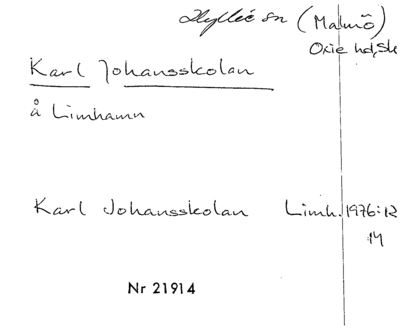 Hyllie sn (Malmö)
Oxie hd, Sk
Karl Johansskolan
å Limhamn
Karl Johansskolan Limh. 1976:12
14
Nr 21914